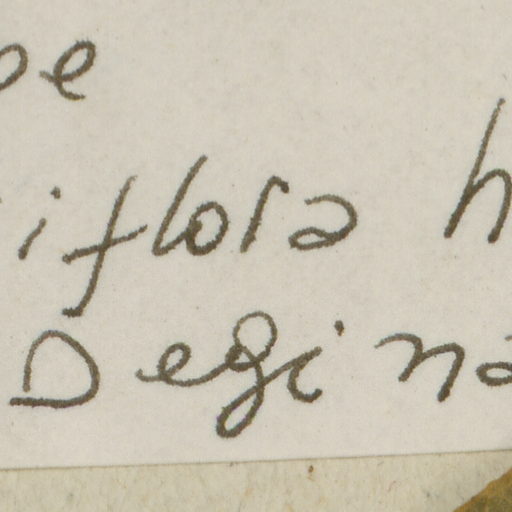 oe
iflora h
Degina